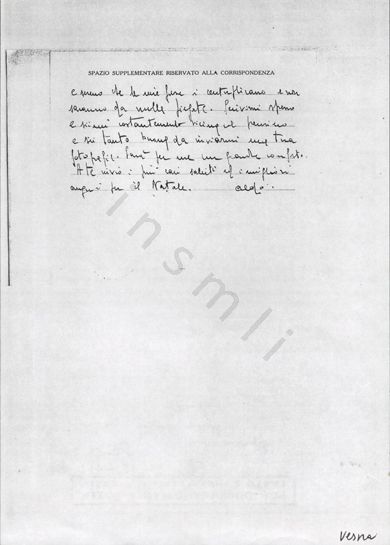 SPAZIO SUPPLEMENTARE RISERVATO ALLA CORRISPONDENZA
e meno che le mie forze si centuplicano e non
saranno da nulla piegate. Scrivimi spesso
e siimi costantemente vicina col pensiero
e sii tanto buona da inviarmi una tua
fotografia. Sarà per me un grande conforto.
A te invio i più cari saluti ed i migliori
auguri per il Natale. Aldo.
insmli
Vesna